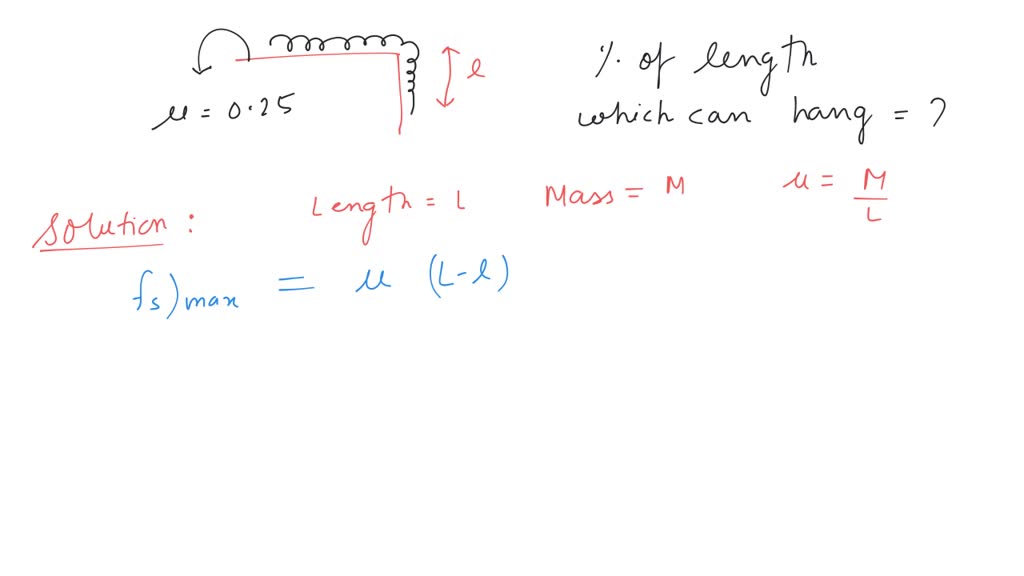 l
μ = 0.25
% of length
which can hang = ?
Solution :
Length = L
Mass = M
μ = M/L
fs)max = μ (L-l)